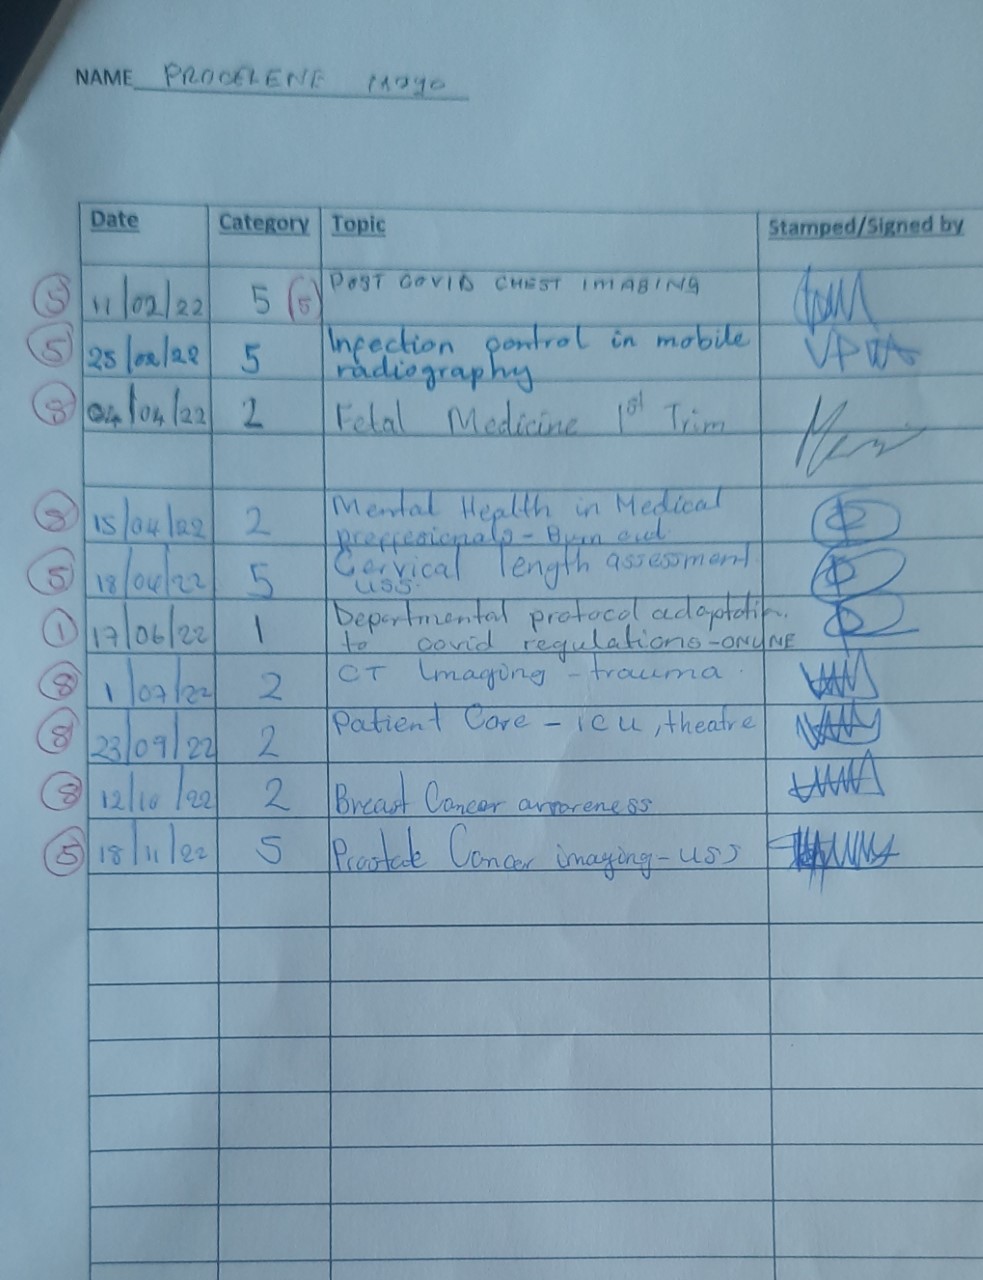 NAME PROCELENE MOYO
Date Category Topic Stamped/Signed by
5 11/02/22 5 5 POST COVID CHEST IMAGING
5 25/02/22 5 Infection control in mobile
radiography
8 04/04/22 2 Fetal Medicine 1st Trim
8 15/04/22 2 Mental Health in Medical
proffesionals - Burn out
5 18/04/22 5 Cervical length assessment
USS.
1 17/06/22 1 Departmental protocol adaptation
to covid regulations - ONLINE
8 1/07/22 2 CT Imaging - trauma.
8 23/09/22 2 Patient Care - ICU, theatre
8 12/10/22 2 Breast Cancer awareness
5 18/11/22 5 Prostate Cancer imaging - USS